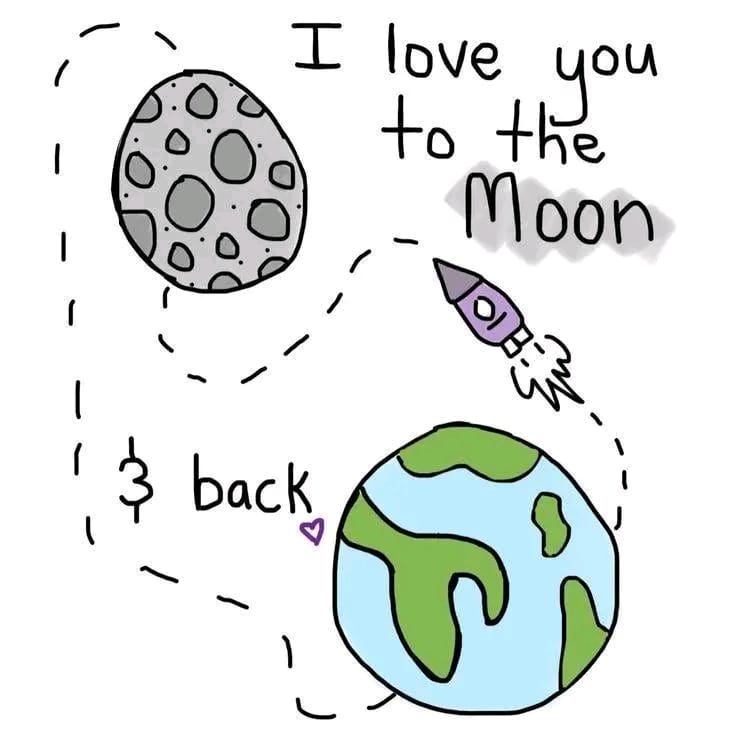 I love you
to the
Moon
& back